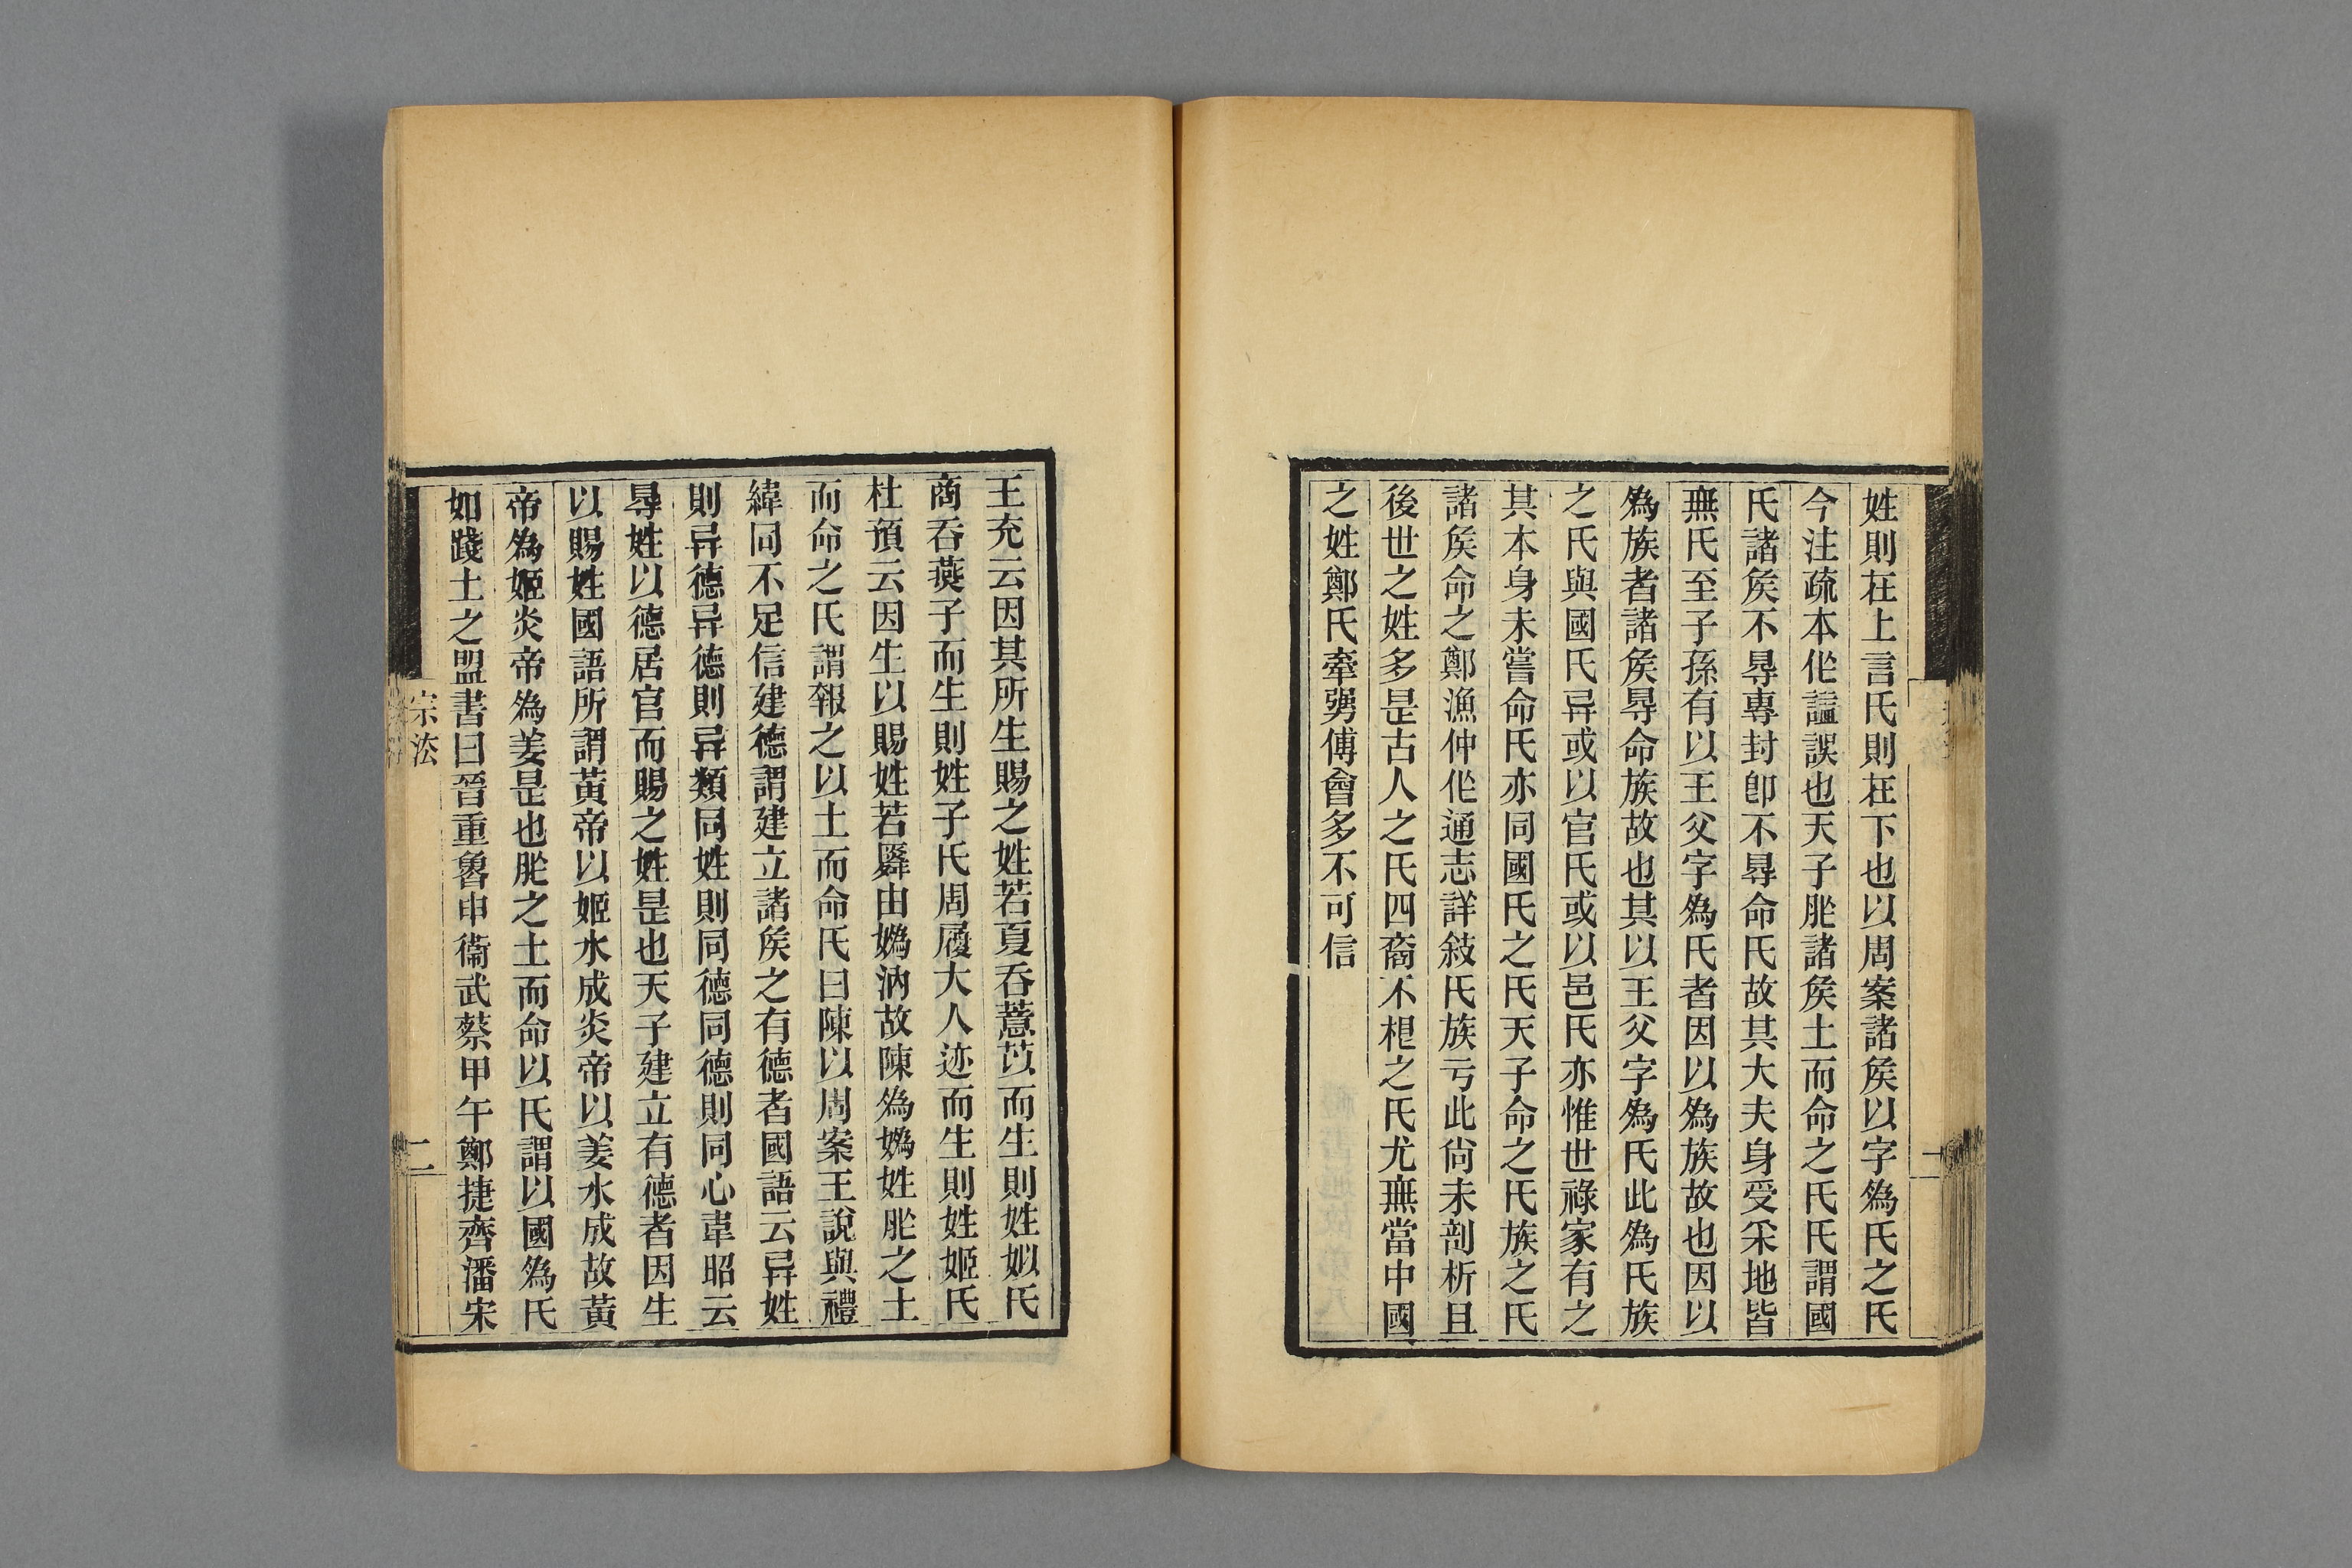 姓則在上言氏則在下也以周案諸矦以字爲氏之氏
今注疏本作諡誤也天子胙諸矦土而命之氏氏謂國
氏諸矦不㝵專封卽不㝵命氏故其大夫身受采地皆
無氏至子孫有以王父字爲氏者因以爲族故也因以
爲族者諸矦㝵命族故也其以王父字爲氏此爲氏族
之氏與國氏异或以官氏或以邑氏亦惟世祿家有之
其本身未嘗命氏亦同國氏之氏天子命之氏族之氏
諸矦命之鄭漁仲作通志詳敍氏族亏此尙未剖析且
後世之姓多是古人之氏四裔不梍之氏尤無當中國
之姓鄭氏牽彊傅會多不可信
王充云因其所生賜之姓若夏吞薏苡而生則姓姒氏
商吞燕子而生則姓子氏周履大人迹而生則姓姬氏
杜預云因生以賜姓若舜由嬀汭故陳爲嬀姓胙之土
而命之氏謂報之以土而命氏曰陳以周案王說與禮
緯同不足信建德謂建立諸矦之有德者國語云异姓
則异德异德則异類同姓則同德同德則同心韋昭云
㝵姓以德居官而賜之姓是也天子建立有德者因生
以賜姓國語所謂黃帝以姬水成炎帝以姜水成故黃
帝爲姬炎帝爲姜是也胙之土而命以氏謂以國爲氏
如踐土之盟書曰晉重魯申衞武蔡甲午鄭捷齊潘宋
宗法
二